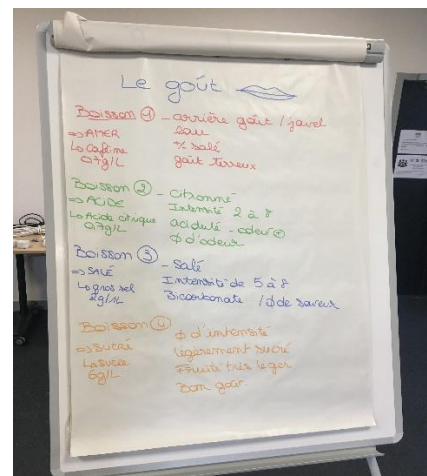 Le goût
Boisson 1 - arrière goût / javel
=> AMER eau
↳ Caféine +/- salé
0,7g/L goût terreux
Boisson 2 - Citronné
=> ACIDE Intensité 2 à 8
↳ Acide citrique acidulé - odeur +
0,7g/L Ø d'odeur
Boisson 3 - Salé
=> SALÉ Intensité de 5 à 8
↳ gros sel Bicarbonate / Ø de saveur
2g/L
Boisson 4 Ø d'intensité
=> SUCRÉ légèrement sucré
↳ Sucre Fruité très léger
6g/L Bon goût